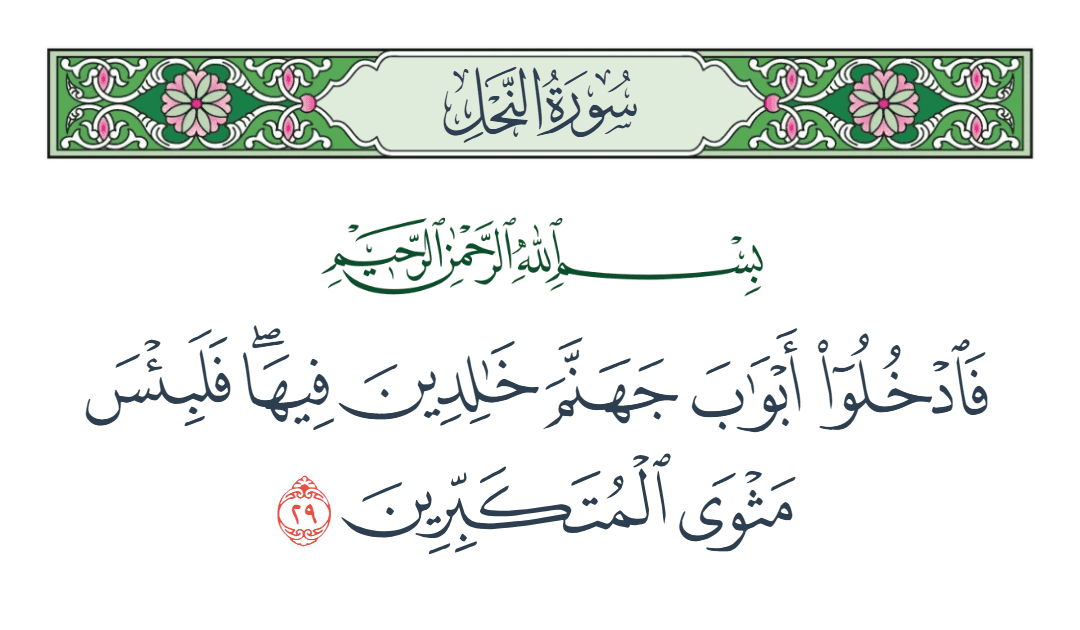 سُورَةُ النَّحْلِ
بِسْمِ ٱللَّهِ ٱلرَّحْمَٰنِ ٱلرَّحِيمِ
فَٱدْخُلُوٓا۟ أَبْوَٰبَ جَهَنَّمَ خَٰلِدِينَ فِيهَا ۖ فَلَبِئْسَ
مَثْوَى ٱلْمُتَكَبِّرِينَ ٢٩